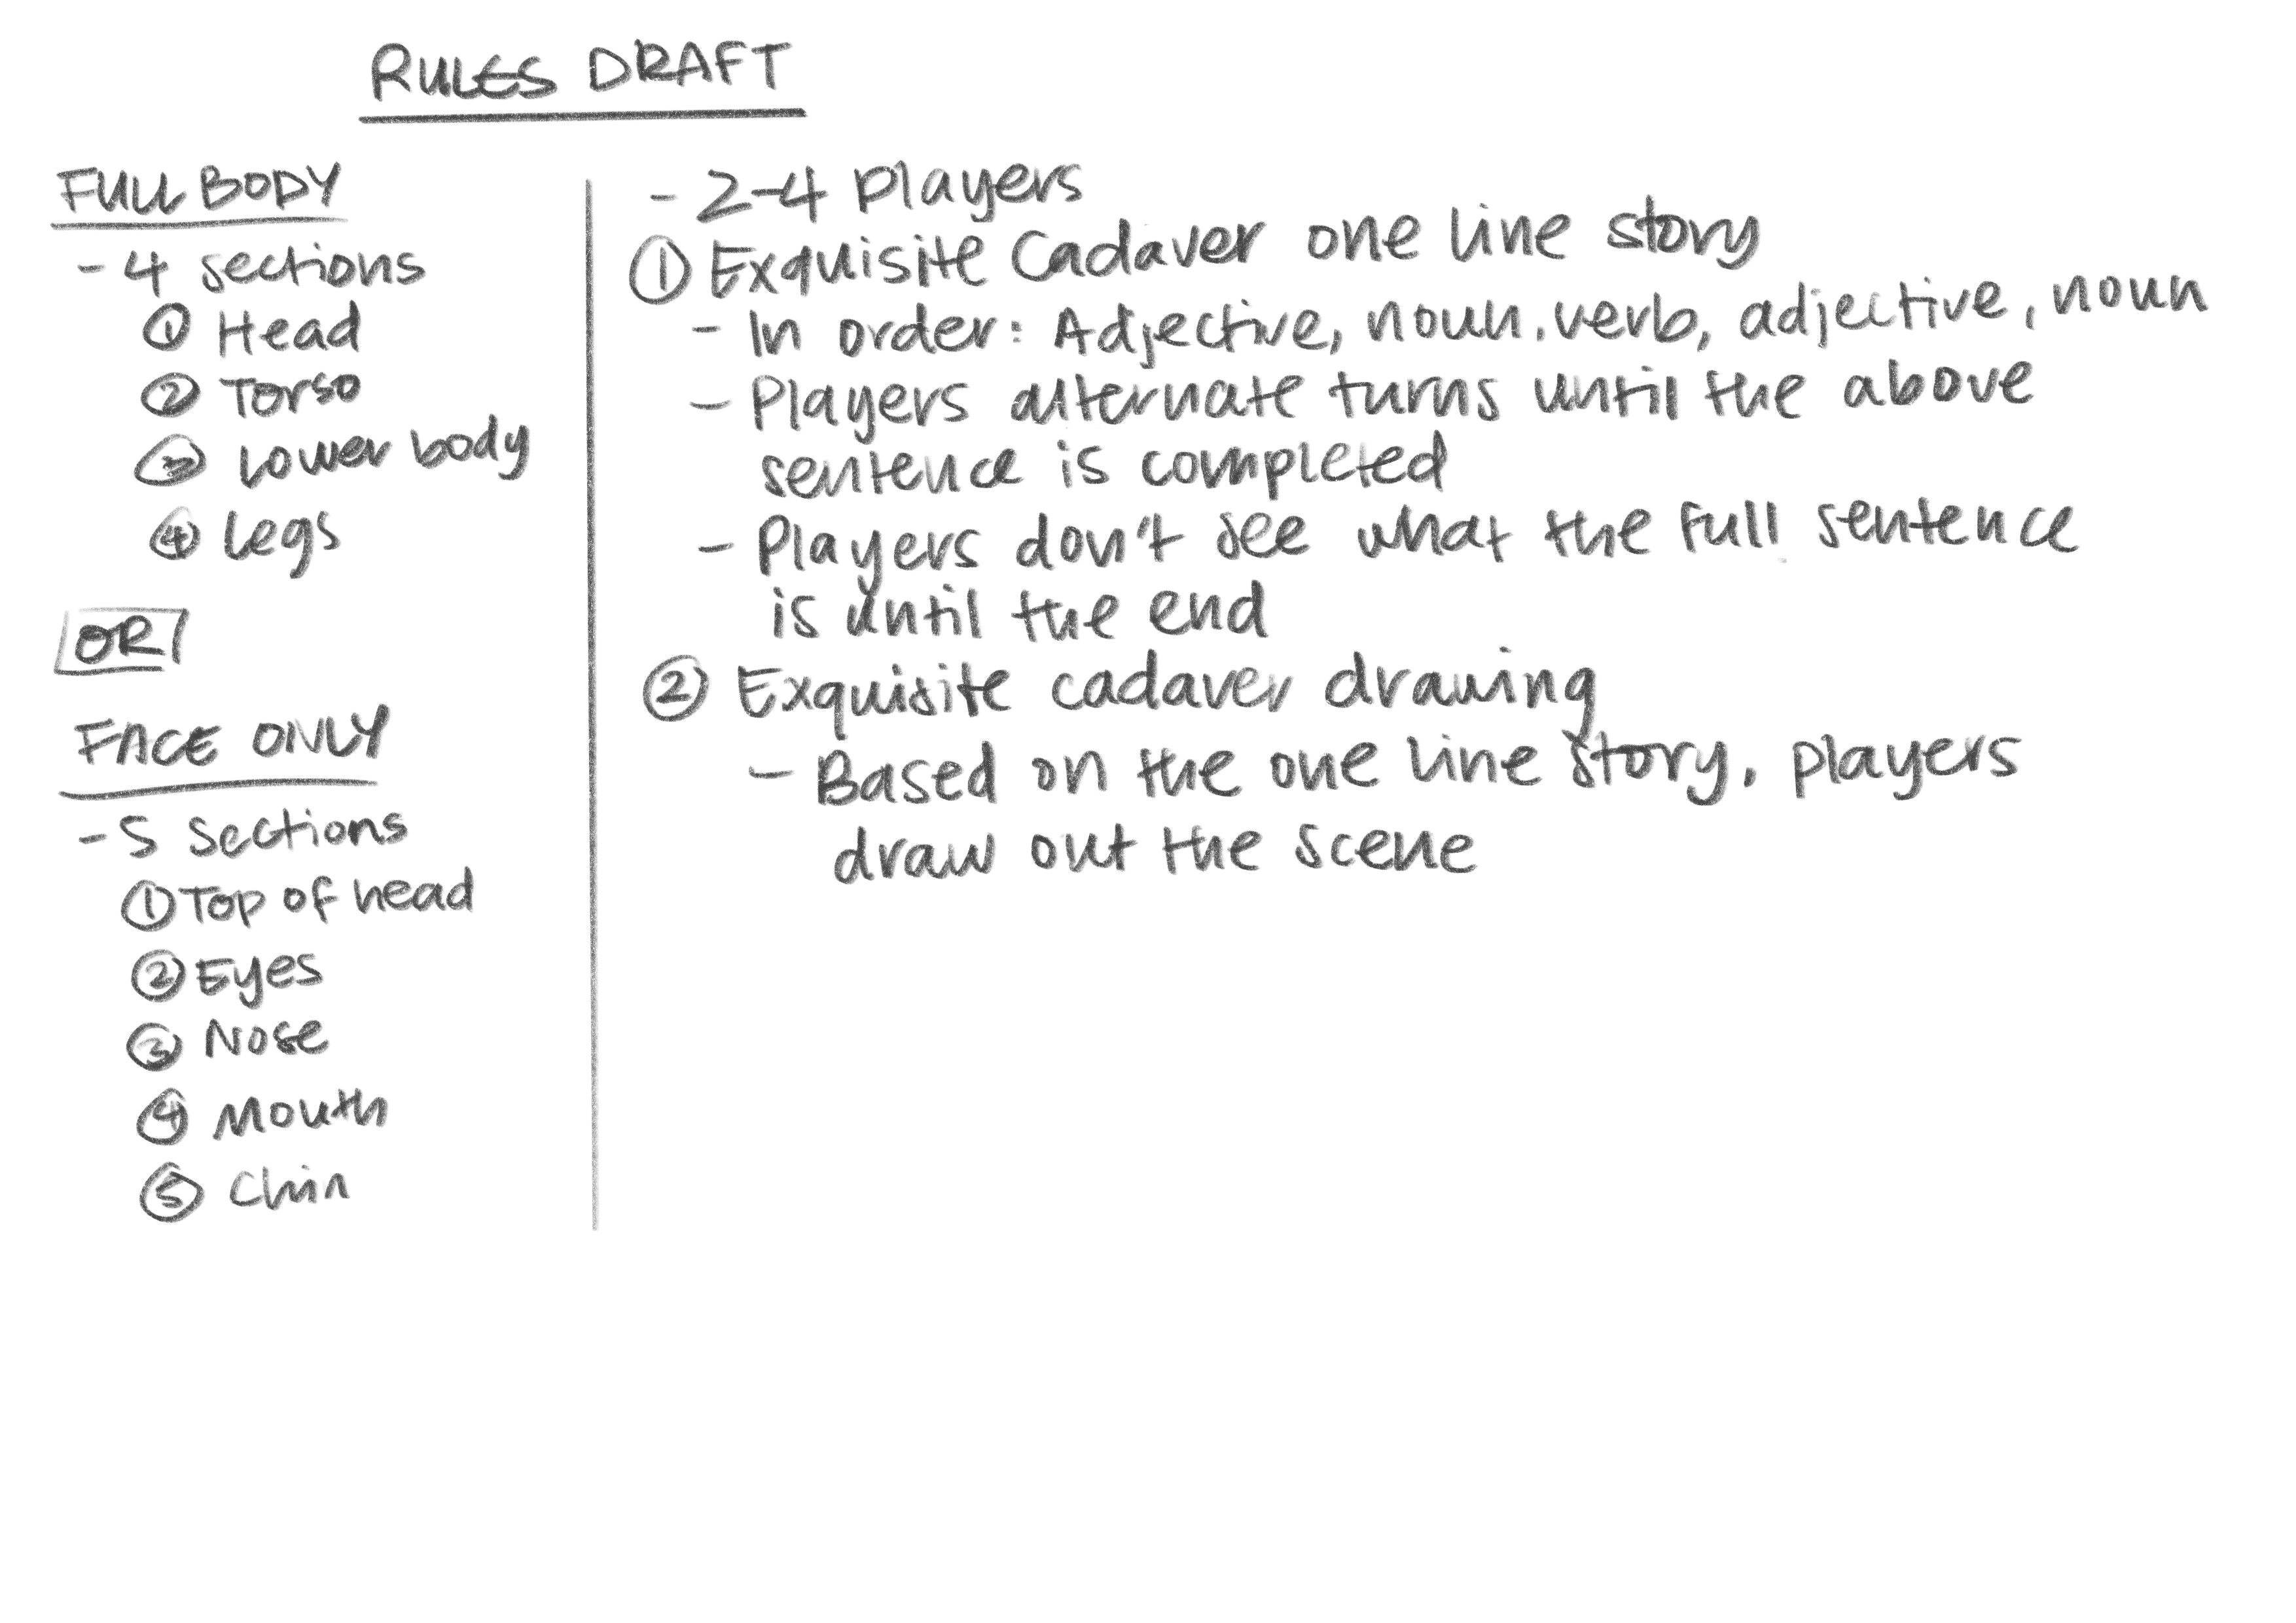 RULES DRAFT
FULL BODY
- 4 sections
① Head
② Torso
③ Lower body
④ Legs
OR
FACE ONLY
- 5 sections
① Top of head
② Eyes
③ Nose
④ Mouth
⑤ Chin
- 2-4 players
① Exquisite Cadaver one line story
- In order: Adjective, noun, verb, adjective, noun
- Players alternate turns until the above
sentence is completed
- Players don't see what the full sentence
is until the end
② Exquisite cadaver drawing
- Based on the one line story, players
draw out the scene